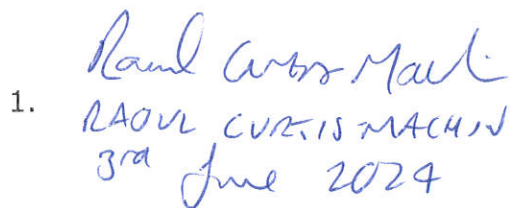 Raoul Curtis-Machin
1.
RAOUL CURTIS-MACHIN
3rd June 2024